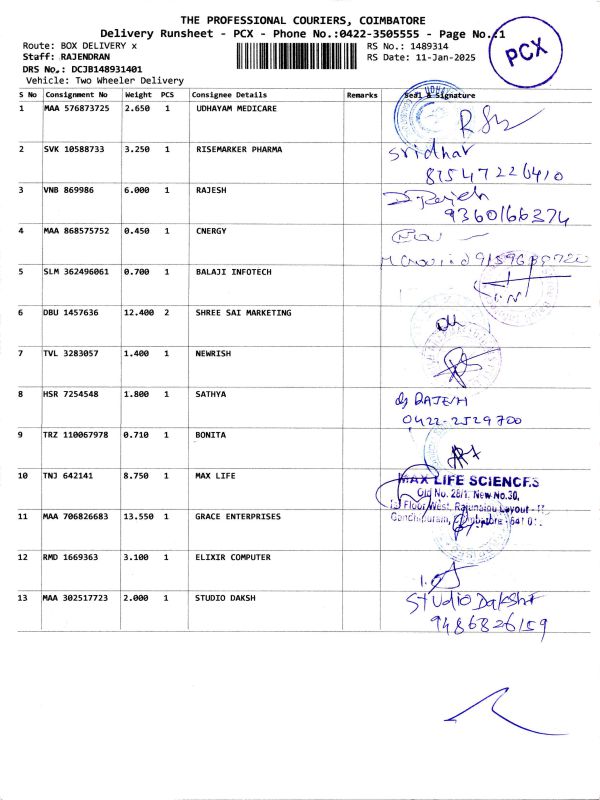 THE PROFESSIONAL COURIERS, COIMBATORE
Delivery Runsheet - PCX - Phone No.:0422-3505555 - Page No.:1
PCX
Route: BOX DELIVERY x
RS No.: 1489314
Staff: RAJENDRAN
RS Date: 11-Jan-2025
DRS No,: DCJB148931401
Vehicle: Two Wheeler Delivery
S No Consignment No Weight PCS Consignee Details Remarks Seal & Signature
1 MAA 576873725 2.650 1 UDHAYAM MEDICARE
2 SVK 10588733 3.250 1 RISEMARKER PHARMA Sridhar
3 VNB 869986 6.000 1 RAJESH
9360166374
4 MAA 868575752 0.450 1 CNERGY
5 SLM 362496061 0.700 1 BALAJI INFOTECH
6 DBU 1457636 12.400 2 SHREE SAI MARKETING
7 TVL 3283057 1.400 1 NEWRISH
8 HSR 7254548 1.800 1 SATHYA
0422-2529700
9 TRZ 110067978 0.710 1 BONITA
10 TNJ 642141 8.750 1 MAX LIFE
MAX LIFE SCIENCES
Old No. 28/1, New No.30,
Floor West, Layout
11 MAA 706826683 13.550 1 GRACE ENTERPRISES
12 RMD 1669363 3.100 1 ELIXIR COMPUTER
13 MAA 302517723 2.000 1 STUDIO DAKSH
Studio Daksh
9486826159